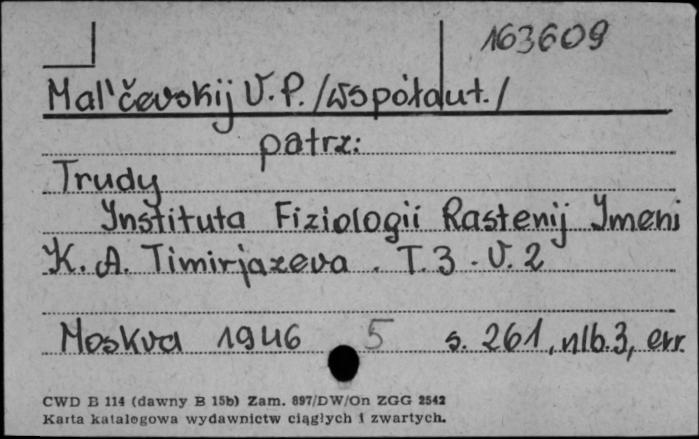 163609
Mal'čevskij V.P. /współaut./
patrz:
Trudy
Instituta Fiziologii Rastenij Imeni
K. A. Timirjazeva. T. 3. V. 2
Moskva 1946 5 s. 261, nlb. 3, err.
CWD B 114 (dawny B 15b) Zam. 897/DW/On ZGG 2542
Karta katalogowa wydawnictw ciągłych i zwartych.